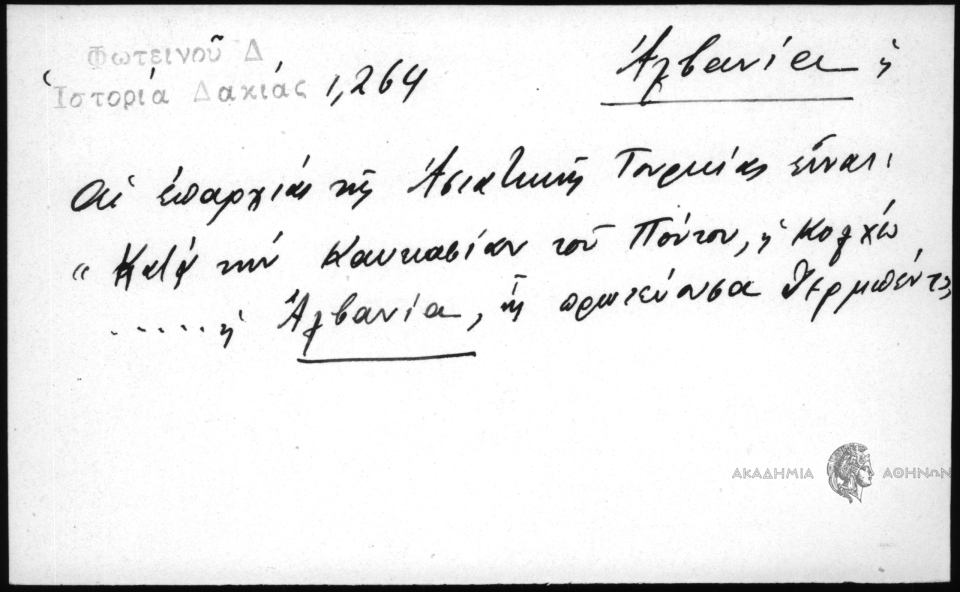 Φωτεινοῦ Δ
Ἱστορία Δακίας 1,264
Ἀλβανία ἡ
Αἱ ἐπαρχίαι τῆς Ἀσιατικῆς Τουρκίας εἶναι:
"Κατὰ τὴν Καυκασίαν τοῦ Πόντου, ἡ Κολχὶς
......ἡ Ἀλβανία, ἧς πρωτεύουσα Δερμπέντ
ΑΚΑΔΗΜΙΑ ΑΘΗΝΩΝ